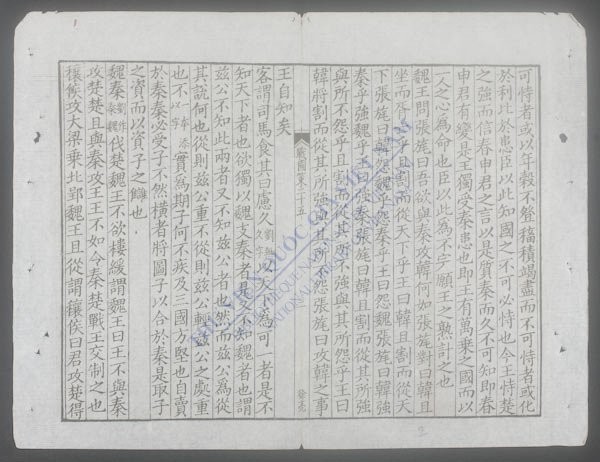 可恃者或以年穀不登稸積竭盡而不可恃者或化
於利比於患臣以此知國之不可必恃也今王恃楚
之強而信春申君之言以是質秦而久不可知即春
申君有變是王獨受秦患也即王有萬乘之國而以
一人之心為命也臣以此為不完願王之熟計之也
魏王問張旄曰吾欲與秦攻韓何如張旄對曰韓且
坐而胥亡乎且割而從天下乎王曰韓且割而從天
下張旄曰韓怨魏乎怨秦乎王曰怨魏張旄曰韓強
秦乎強魏乎王曰強秦張旄曰韓且割而從其所強
與所不怨乎且割而從其所不強與其所怨乎王曰
韓將割而從其所強與其所不怨張旄曰攻韓之事
戰國策二十五
王自知矣
客謂司馬食其曰慮久以天下為可一者是不
知天下者也欲獨以魏支秦者是又不知魏者也謂
茲公不知此兩者又不知茲公者也然而茲公為從
其說何也從則茲公重不從則茲公輕茲公之處重
也不一本添以字實為期子何不疾及三國方堅也自賣
於秦秦必受子不然橫者將圖子以合於秦是取子
之資而以資子之讎也
魏秦劉作秦魏伐楚魏王不欲樓緩謂魏王曰王不與秦
攻楚楚且與秦攻王王不如令秦楚戰王交制之也
穰侯攻大梁乘北郢魏王且從謂穰侯曰君攻楚得
THƯ VIỆN QUỐC GIA VIỆT NAM